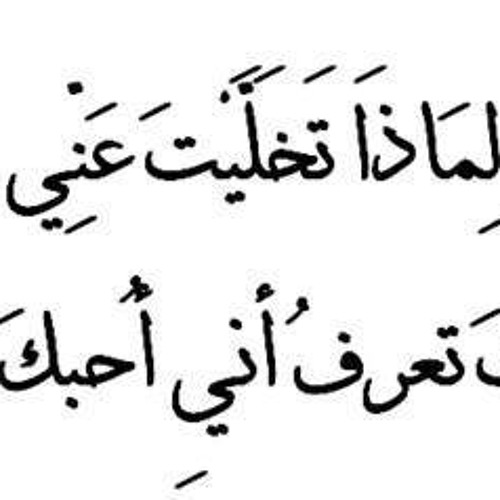 لِمَاذَا تَخَلَّيتَ عَنِي
تَعرفُ أنيِ أُحبكَ